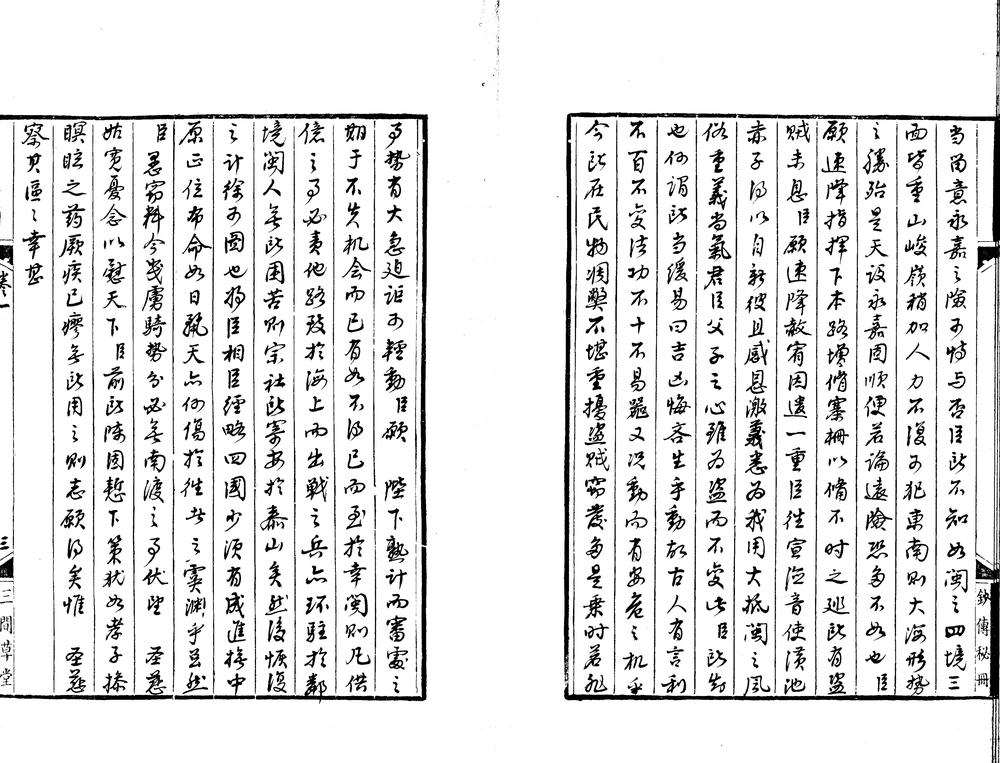 当留意永嘉之險可恃与否臣所不知如閩之四境三
面皆重山峻嶺稍加人力不復可犯東南則大海形勢
之勝殆是天設永嘉固順便若論遠險恐多不如也臣
願速降指揮下本路增脩寨柵以備不时之廵所有盜
賊未息臣願速降赦宥因遣一重臣徃宣德音使潢池
赤子得以自新彼且感恩激義悉为我用大抵閩之風
俗重義尚氣君臣父子之心雖为盜而不变此臣所知
也何謂所当缓易曰吉凶悔吝生乎動故古人有言利
不百不变法功不十不易器又况動而有安危之机乎
今所在民物凋獘不堪重擾盜贼窃發多是乗时若非
事勢有大急廹詎可輕動臣願 陛下熟计而審處之
期于不失机会而已有如不得已而至於幸閩則凡供
億之事必责他路致於海上而出戰之兵亦环駐於鄰
境閩人無所困苦則宗社所寄安於泰山矣然後恢復
之计徐可圖也揚臣相臣經略四國少须有成進撫中
原正位布命如日麗天亦何傷於徃者之虞渊乎且然
臣愚窃料今歲虜騎勢分必無南渡之事伏望 圣慈
姑寛憂念以慰天下臣前所陳固慙下策状如孝子捧
瞑眩之药厥疾已瘳無所用之則志願得矣惟 圣慈
察其區〻幸甚
卷一
三
三間草堂
鈔傳秘冊